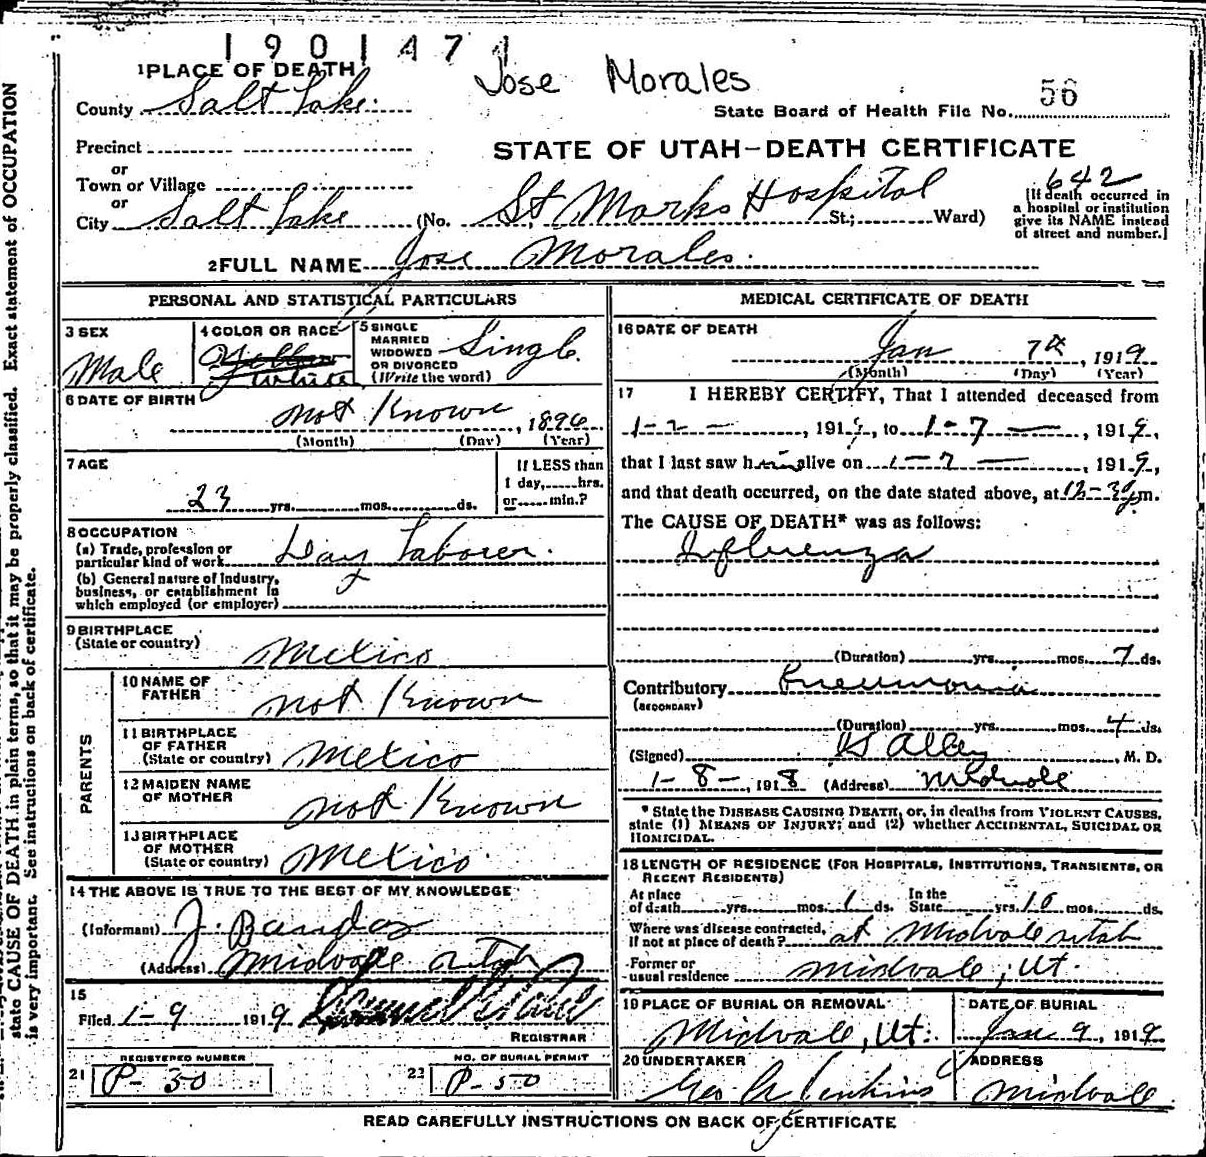 1901474
Jose Morales
1 PLACE OF DEATH
County Salt Lake.
State Board of Health File No. 56
Precinct
STATE OF UTAH—DEATH CERTIFICATE
or
Town or Village
or
642
City Salt Lake (No. St Marks Hospital St.; Ward)
[If death occurred in
a hospital or institution
give its NAME instead
of street and number.]
2 FULL NAME Jose Morales.
PERSONAL AND STATISTICAL PARTICULARS
3 SEX
Male
4 COLOR OR RACE
Yellow
White
5 SINGLE
MARRIED
WIDOWED
OR DIVORCED
(Write the word)
Single.
6 DATE OF BIRTH
not Known, 1896
(Month) (Day) (Year)
7 AGE
23 yrs. mos. ds.
If LESS than
1 day, hrs.
or min.?
8 OCCUPATION
(a) Trade, profession or
particular kind of work Day Laborer.
(b) General nature of Industry,
business, or establishment in
which employed (or employer)
9 BIRTHPLACE
(State or country)
Mexico
PARENTS
10 NAME OF
FATHER
not Known
11 BIRTHPLACE
OF FATHER
(State or country) Mexico
12 MAIDEN NAME
OF MOTHER
not Known
13 BIRTHPLACE
OF MOTHER
(State or country) Mexico.
14 THE ABOVE IS TRUE TO THE BEST OF MY KNOWLEDGE
(Informant) J. Bandos
(Address) Midvale Utah
15
Filed 1-9 1919
REGISTRAR
REGISTERED NUMBER
21 P-50
NO. OF BURIAL PERMIT
22 P-50
MEDICAL CERTIFICATE OF DEATH
16 DATE OF DEATH
Jan 7th, 1919
(Month) (Day) (Year)
17 I HEREBY CERTIFY, That I attended deceased from
1-2-, 1919, to 1-7, 1919,
that I last saw him alive on 1-7, 1919,
and that death occurred, on the date stated above, at 12-30 pm.
The CAUSE OF DEATH* was as follows:
Influenza
(Duration) yrs. mos. 7 ds.
Contributory Pneumonia
(SECONDARY)
(Duration) yrs. mos. 4 ds.
(Signed) Alley, M. D.
1-8-, 1918 (Address) Midvale
*State the DISEASE CAUSING DEATH, or, in deaths from VIOLENT CAUSES,
state (1) MEANS OF INJURY; and (2) whether ACCIDENTAL, SUICIDAL OR
HOMICIDAL.
18 LENGTH OF RESIDENCE (FOR HOSPITALS, INSTITUTIONS, TRANSIENTS, OR
RECENT RESIDENTS)
At place
of death yrs. mos. 1 ds.
In the
State yrs. 10 mos. ds.
Where was disease contracted,
if not at place of death? at Midvale Utah
Former or
usual residence Midvale, Ut.
19 PLACE OF BURIAL OR REMOVAL
Midvale, Ut.
DATE OF BURIAL
Jan 9, 1919
20 UNDERTAKER
Geo A Jenkins
ADDRESS
Midvale
READ CAREFULLY INSTRUCTIONS ON BACK OF CERTIFICATE
state CAUSE OF DEATH in plain terms, so that it may be properly classified. Exact statement of OCCUPATION
is very important. See instructions on back of certificate.